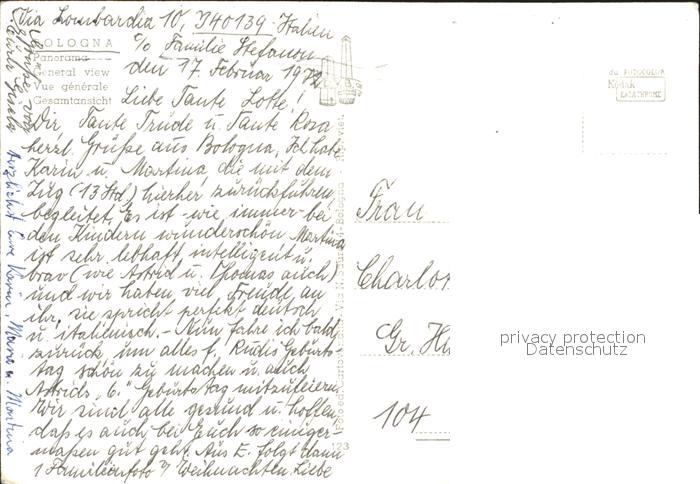 Via Lombardia 10, I 40139 - Italien
BOLOGNA
c/o Familie Stefanon
Panorama
General view
Vue générale
Gesamtansicht
den 17. Februar 197
Liebe Tante Lotte!
Dir, Tante Trude u. Tante Rosa
herzl. Grüße aus Bologna. Ich habe
Karin u. Martina, die mit dem
Zug (13 Std) hierher zurückfuhren,
begleitet. Es ist - wie immer - bei
den Kindern wunderschön. Martina
ist sehr lebhaft, intelligent u.
brav (wie Astrid u. Thomas auch)
und wir haben viel Freude an
ihr, sie spricht perfekt deutsch
u. italienisch. - Nun fahre ich bald
zurück, um alles f. Rudis Geburts-
tag schön zu machen u. auch
Astrids "6." Geburtstag mitzufeiern.
Wir sind alle gesund u. hoffen,
daß es auch bei Euch so einiger-
maßen gut geht. Aus E. folgt dann
1 Familienfoto v. Weihnachten. Liebe
Grüße von
Gisela
Herzlichst Eure Karin, Mario u. Martina
Frau
Charlo
Gr.
104
da FOTOCOLOR
Kodak
EKTACHROME
privacy protection
Datenschutz
123